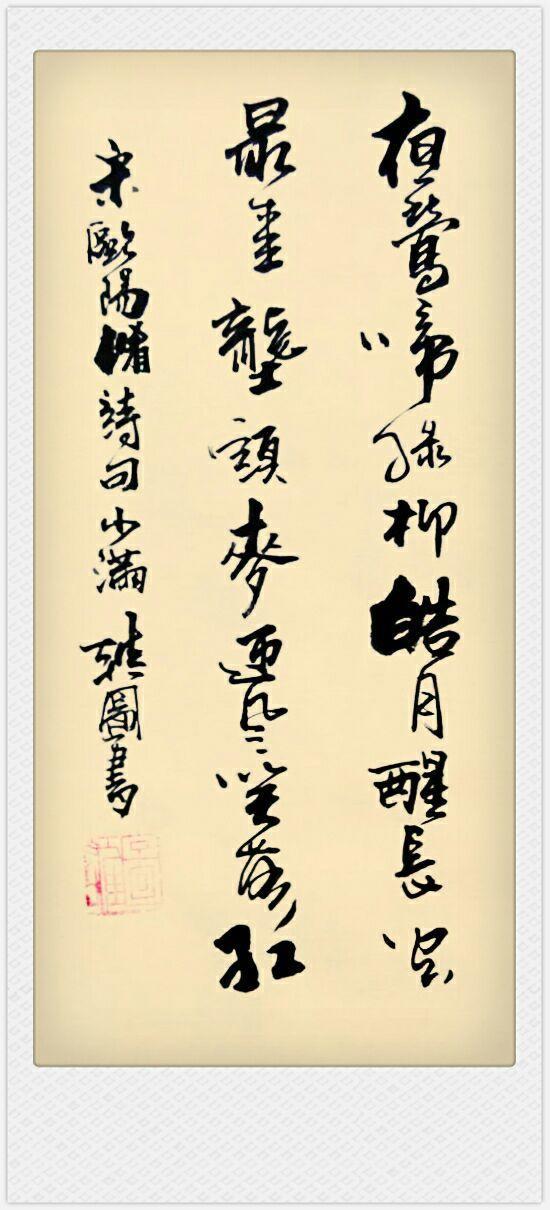 夜鶯啼綠柳皓月醒長空
最愛壟頭麥迎風笑落紅
宋歐陽脩詩句小滿 圖書